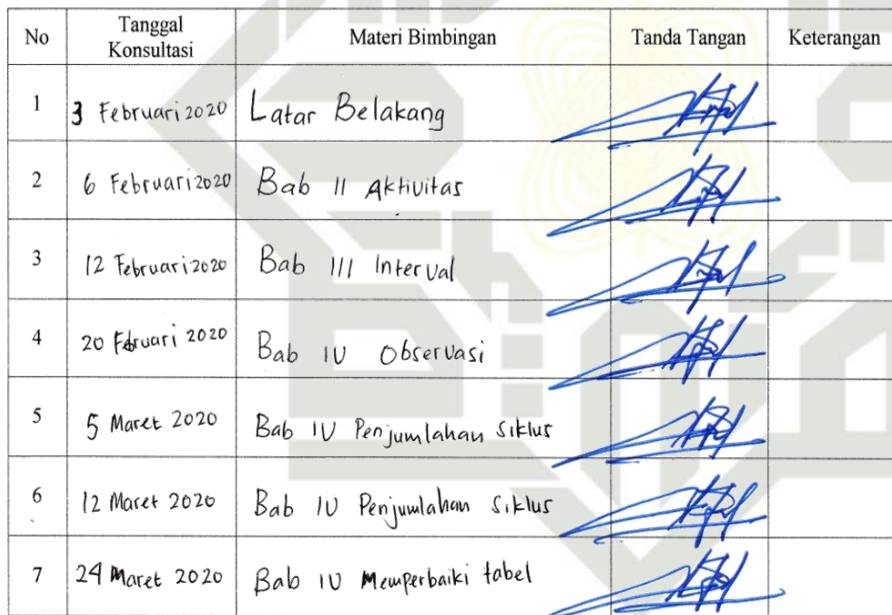 No Tanggal Konsultasi Materi Bimbingan Tanda Tangan Keterangan
1 3 Februari 2020 Latar Belakang
2 6 Februari 2020 Bab II Aktivitas
3 12 Februari 2020 Bab III Interval
4 20 Februari 2020 Bab IV Observasi
5 5 Maret 2020 Bab IV Penjumlahan Siklus
6 12 Maret 2020 Bab IV Penjumlahan Siklus
7 24 Maret 2020 Bab IV Memperbaiki tabel